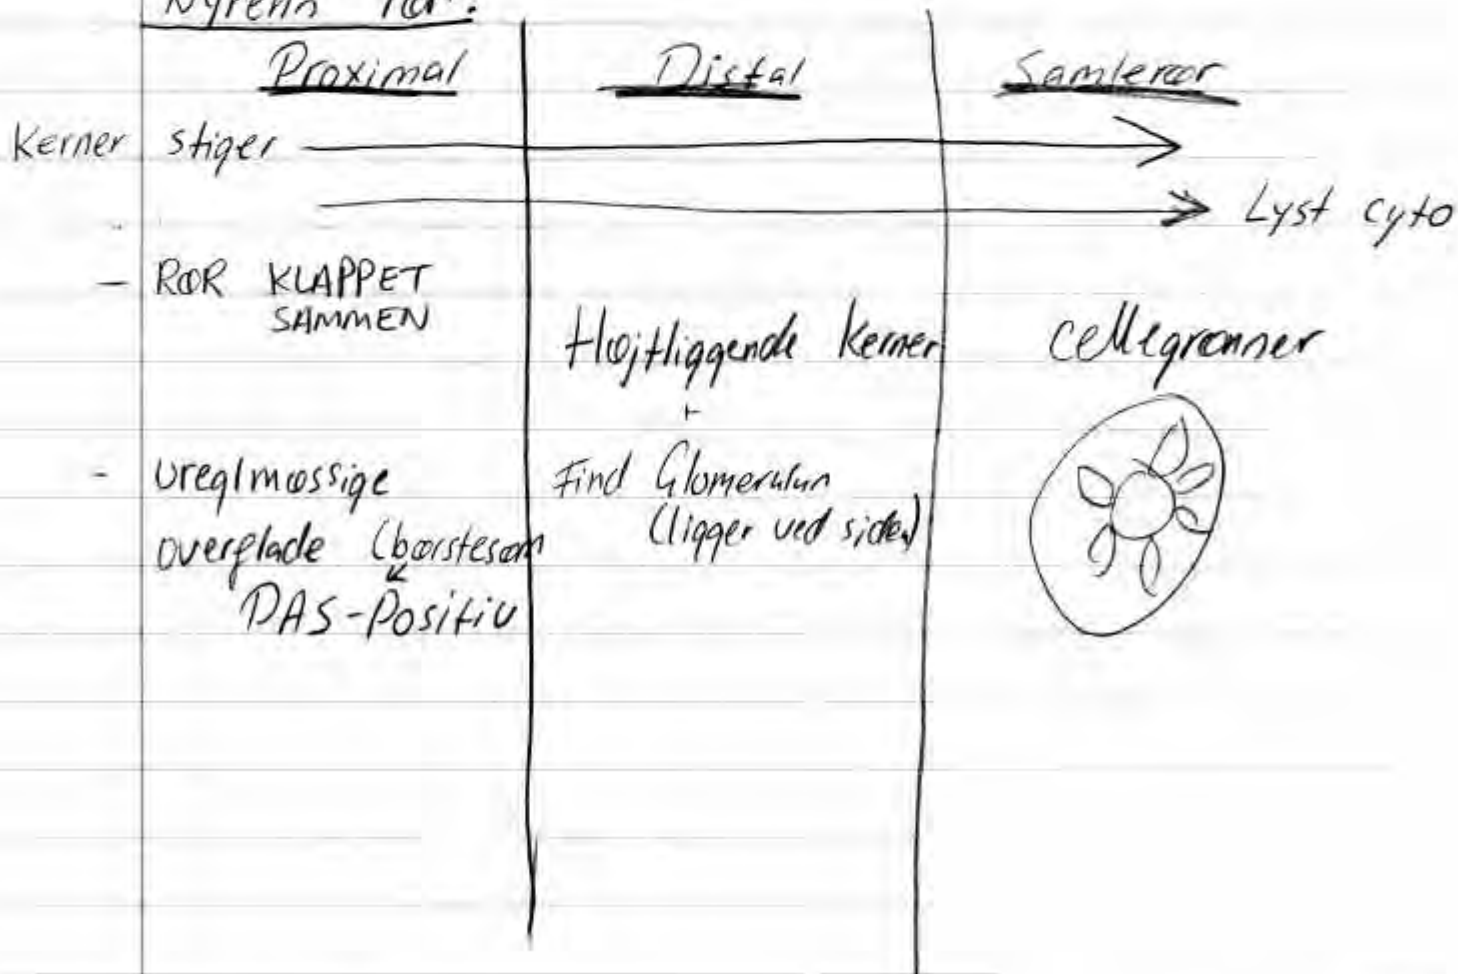 Nyrens rør:
Proximal
Distal
Samlerør
Kerner stiger
Lyst cyto
- RØR KLAPPET
SAMMEN
- Ureglmæssige
overflade (børstesøm
PAS-Positiv
Højtliggende kerner
+
Find Glomerulun
(ligger ved siden)
cellegrænner